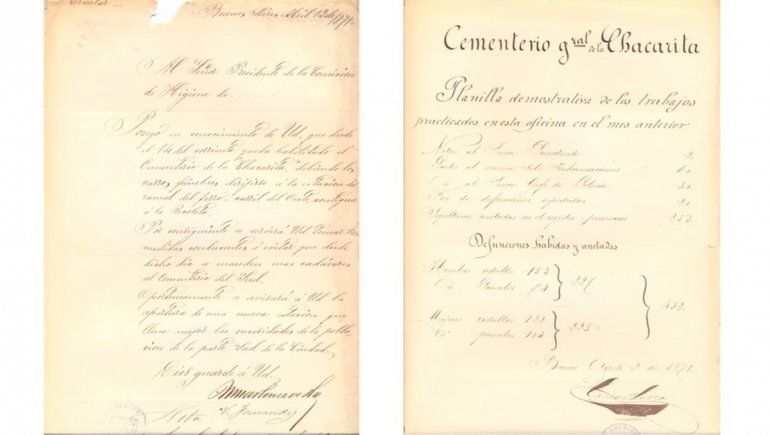 Circular
Buenos Aires Abril 12 de 1871
Al Señor Presidente de la Comision
de Higiene de . . . . . .
Pongo en conocimiento de Ud. que desde
el 14 del corriente queda habilitado el
Cementerio de la "Chacarita", debiendo los
carros fúnebres dirijirse á la estacion del
ramal del ferro-carril del Oeste, contigua
á la Recoleta.
Por consiguiente se servirá Ud tomar las
medidas conducentes á evitar que desde
dicho dia se manden mas cadáveres
al Cementerio del Sud.
Oportunamente se avisará á Ud la
apertura de una nueva estacion que
llene mejor las necesidades de la pobla-
cion de la parte Sud de la Ciudad.
Dios guarde á Ud.
Nota
Cementerio gral de la Chacarita
Planilla demostrativa de los trabajos
practicados en esta oficina en el mes anterior.
Notas al Señor Presidente 2
Partes al mismo sobre Inhumaciones 60
Id al Señor Gefe de Policia 30
de defunciones espedidas 20
Sepulturas anotadas en el registro 253
Defunciones habidas y anotadas
Hombres adultos 153
Id parvulos 74
227
Mugeres adultas 122
Id parvulas 103
225
452
Buenos Agosto 2 de 1871.